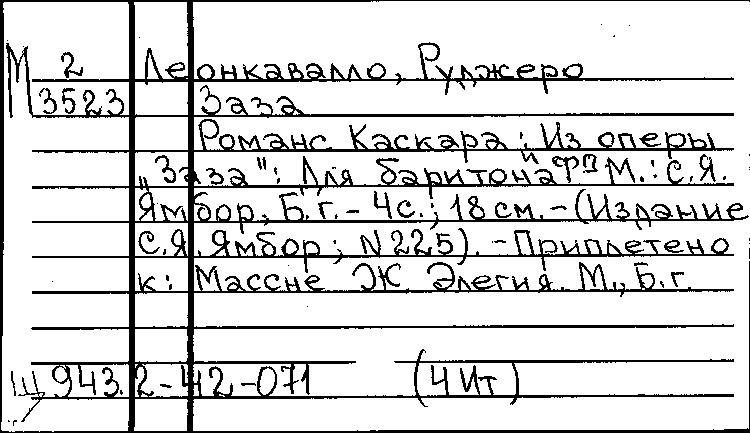 М 2 Леонкавалло, Руджеро
3523 Заза
Романс Каскара: Из оперы
„Заза": Для баритона и фп М.: С.Я.
Ямбор, Б.г. - 4с.; 18см. - (Издание
С.Я. Ямбор; N225). - Приплетено
к: Массне Ж. Элегия. М., Б.г.
Щ943.2-42-071 (4Ит)